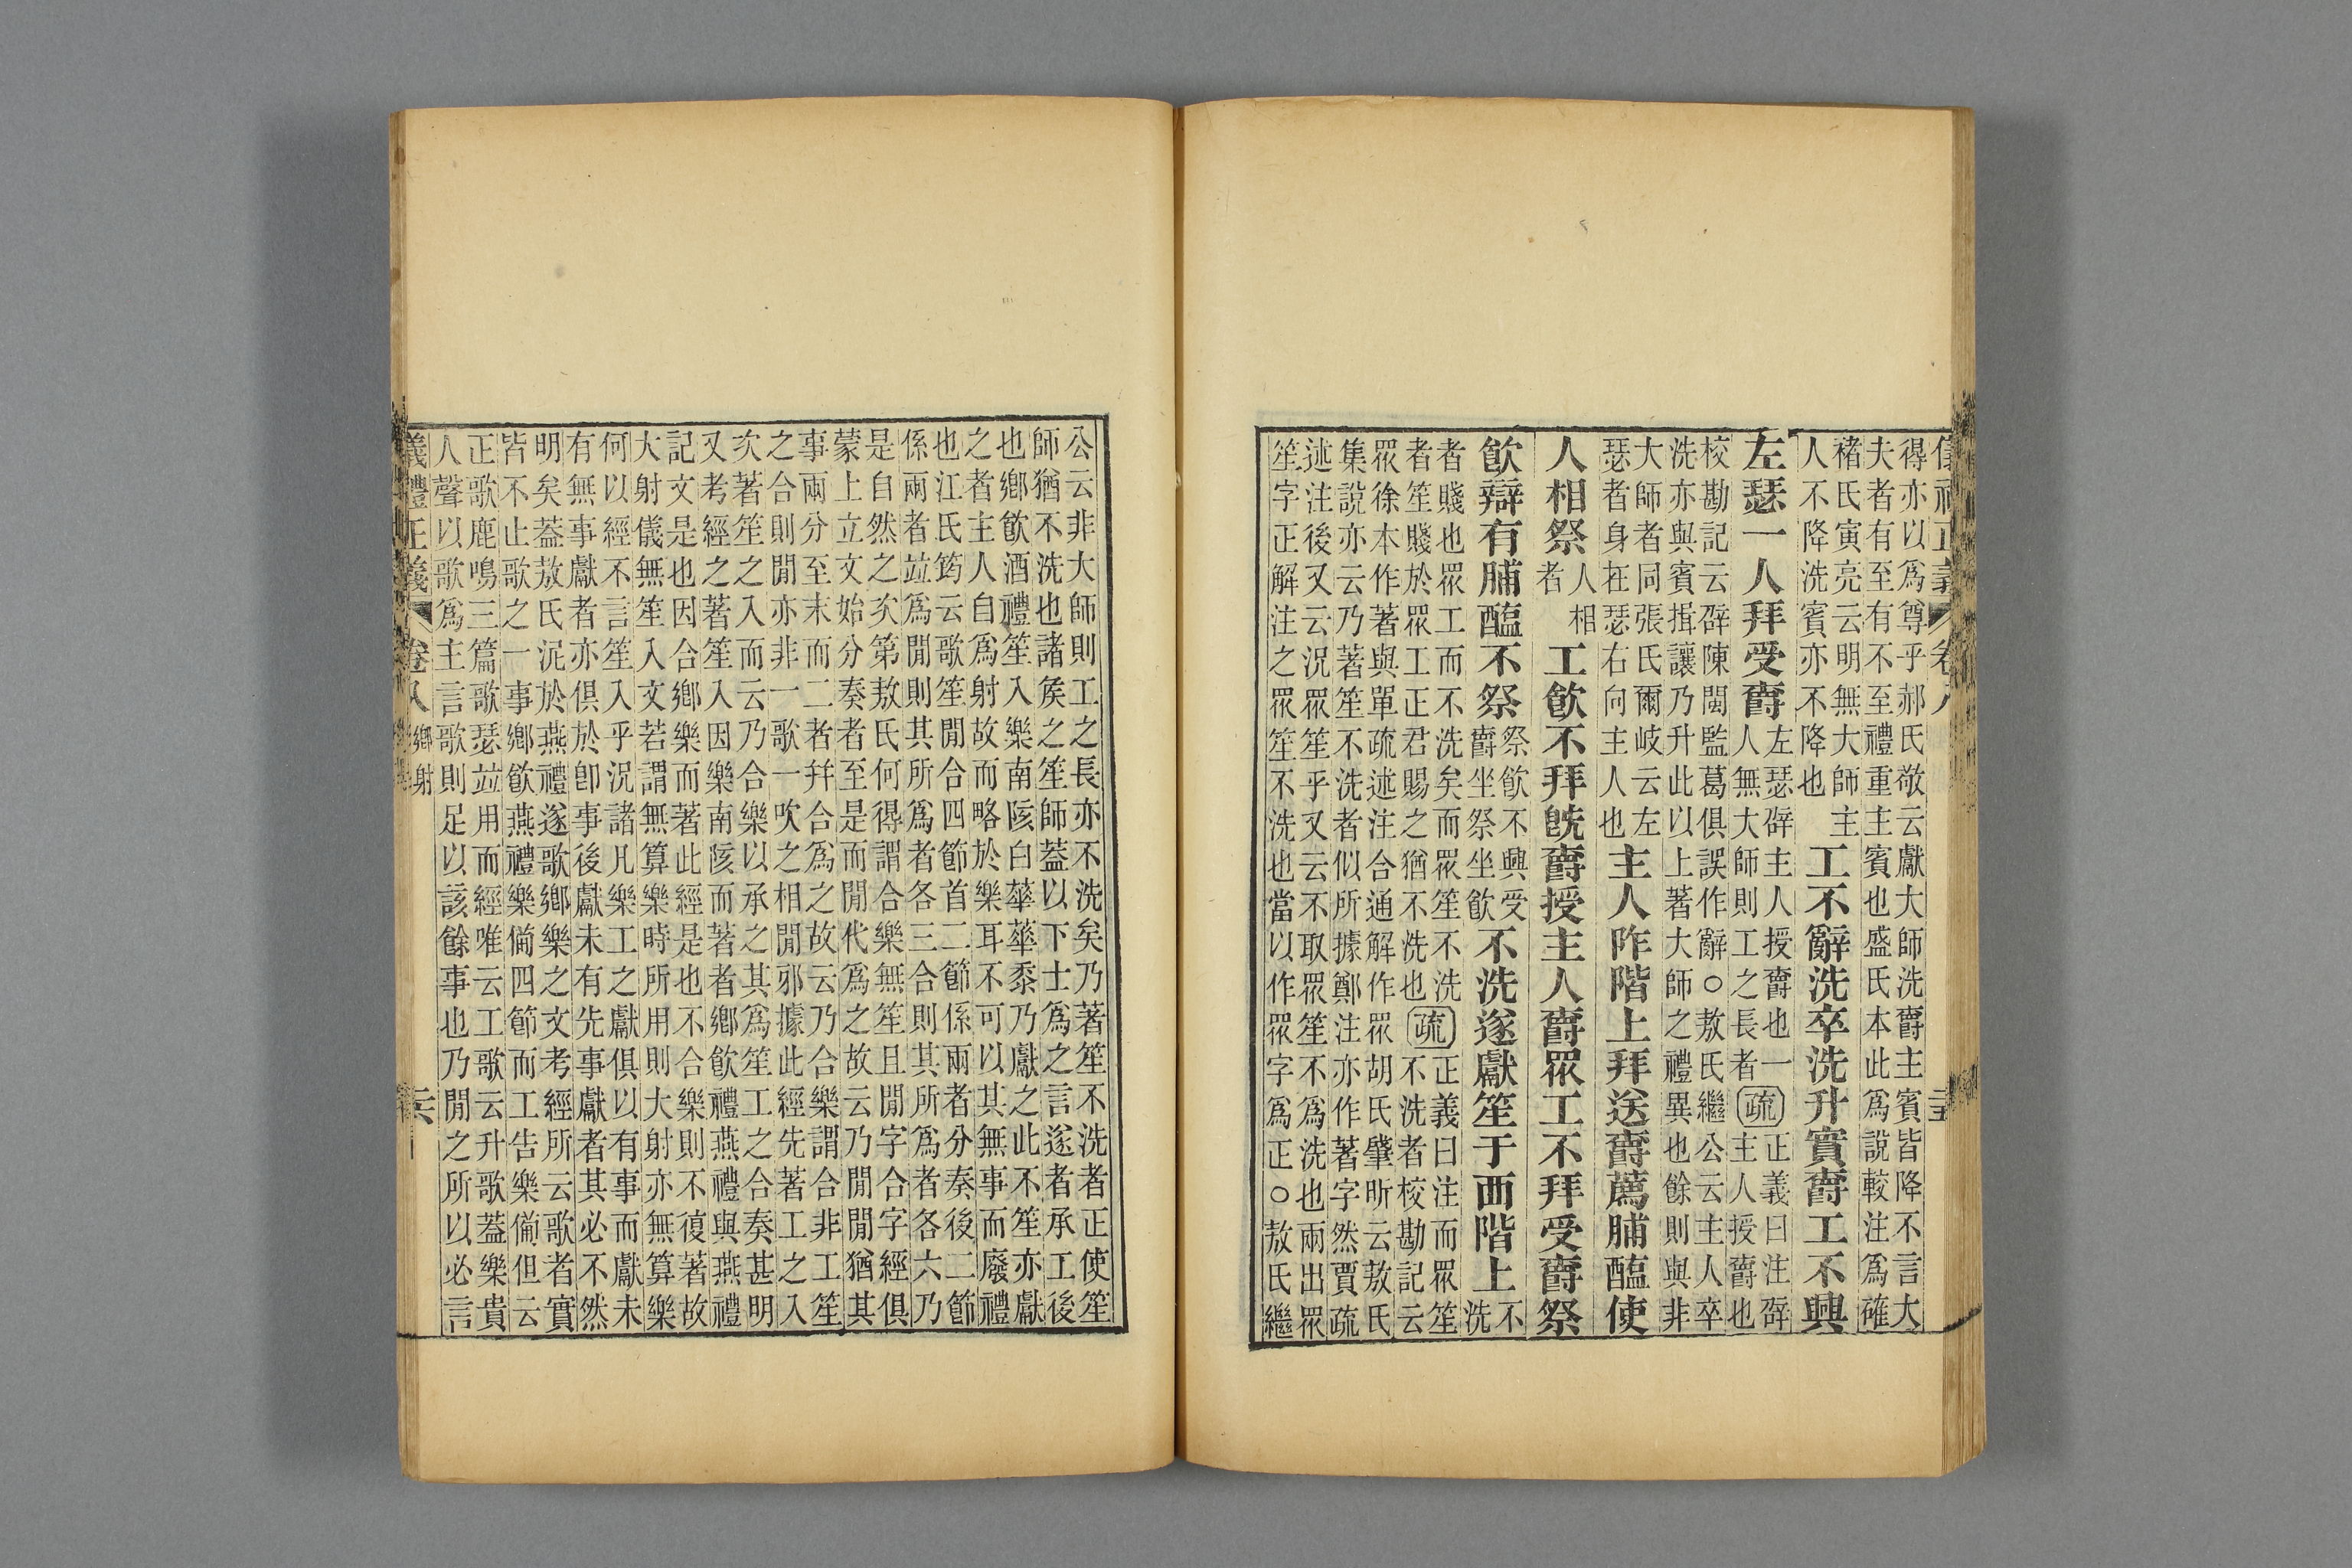 得亦以爲尊乎郝氏敬云獻大師洗爵主賓皆降不言大
夫者有至有不至禮重主賓也盛氏本此爲說較注爲確
褚氏寅亮云明無大師主
人不降洗賓亦不降也
工不辭洗卒洗升實爵工不興
左瑟一人拜受爵
左瑟辟主人授爵也一
人無大師則工之長者
疏
正義曰注辟
主人授爵也
校勘記云辟陳閩監葛俱誤作辭○敖氏繼公云主人卒
洗亦與賓揖讓乃升此以上著大師之禮異也餘則與非
大師者同張氏爾岐云左
瑟者身在瑟右向主人也
主人阼階上拜送爵薦脯醢使
人相祭
人相
者
工飲不拜既爵授主人爵眾工不拜受爵祭
飲辯有脯醢不祭
祭飲不興受
爵坐祭坐飲
不洗遂獻笙于西階上
不
洗
者賤也眾工而不洗矣而眾笙不洗
者笙賤於眾工正君賜之猶不洗也
疏
正義曰注而眾笙
不洗者校勘記云
眾徐本作著與單疏述注合通解作眾胡氏肇昕云敖氏
集說亦云乃著笙不洗者似所據鄭注亦作著字然賈疏
述注後又云況眾笙乎又云不取眾笙不爲洗也兩出眾
笙字正解注之眾笙不洗也當以作眾字爲正○敖氏繼
公云非大師則工之長亦不洗矣乃著笙不洗者正使笙
師猶不洗也諸矦之笙師蓋以下士爲之言遂者承工後
也鄉飲酒禮笙入樂南陔白華華黍乃獻之此不笙亦獻
之者主人自爲射故而略於樂耳不可以其無事而廢禮
也江氏筠云歌笙閒合四節首二節係兩者分奏後二節
係兩者竝爲閒則其所爲者各三合則其所爲者各六乃
是自然之次第敖氏何得謂合樂無笙且閒字合字經俱
蒙上立文始分奏者至是而閒代爲之故云乃閒閒猶其
事兩分至末而二者并合爲之故云乃合樂謂合非工笙
之合則閒亦非一歌一吹之相閒邪據此經先著工之入
次著笙之入而云乃合樂以承之其爲笙工之合奏甚明
又考經之著笙入因樂南陔而著者鄉飲禮燕禮與燕禮
記文是也因合鄉樂而著此經是也不合樂則不復著故
大射儀無笙入文若謂無算樂時所用則大射亦無算樂
何以經不言笙入乎況諸凡樂工之獻俱以有事而獻未
有無事獻者亦俱於卽事後獻未有先事獻者其必不然
明矣蓋敖氏泥於燕禮遂歌鄉樂之文考經所云歌者實
皆不止歌之一事鄉飲燕禮樂備四節而工告樂備但云
正歌鹿鳴三篇歌瑟竝用而經唯云工歌云升歌蓋樂貴
人聲以歌爲主言歌則足以該餘事也乃閒之所以必言
義禮正義 卷八 鄉射